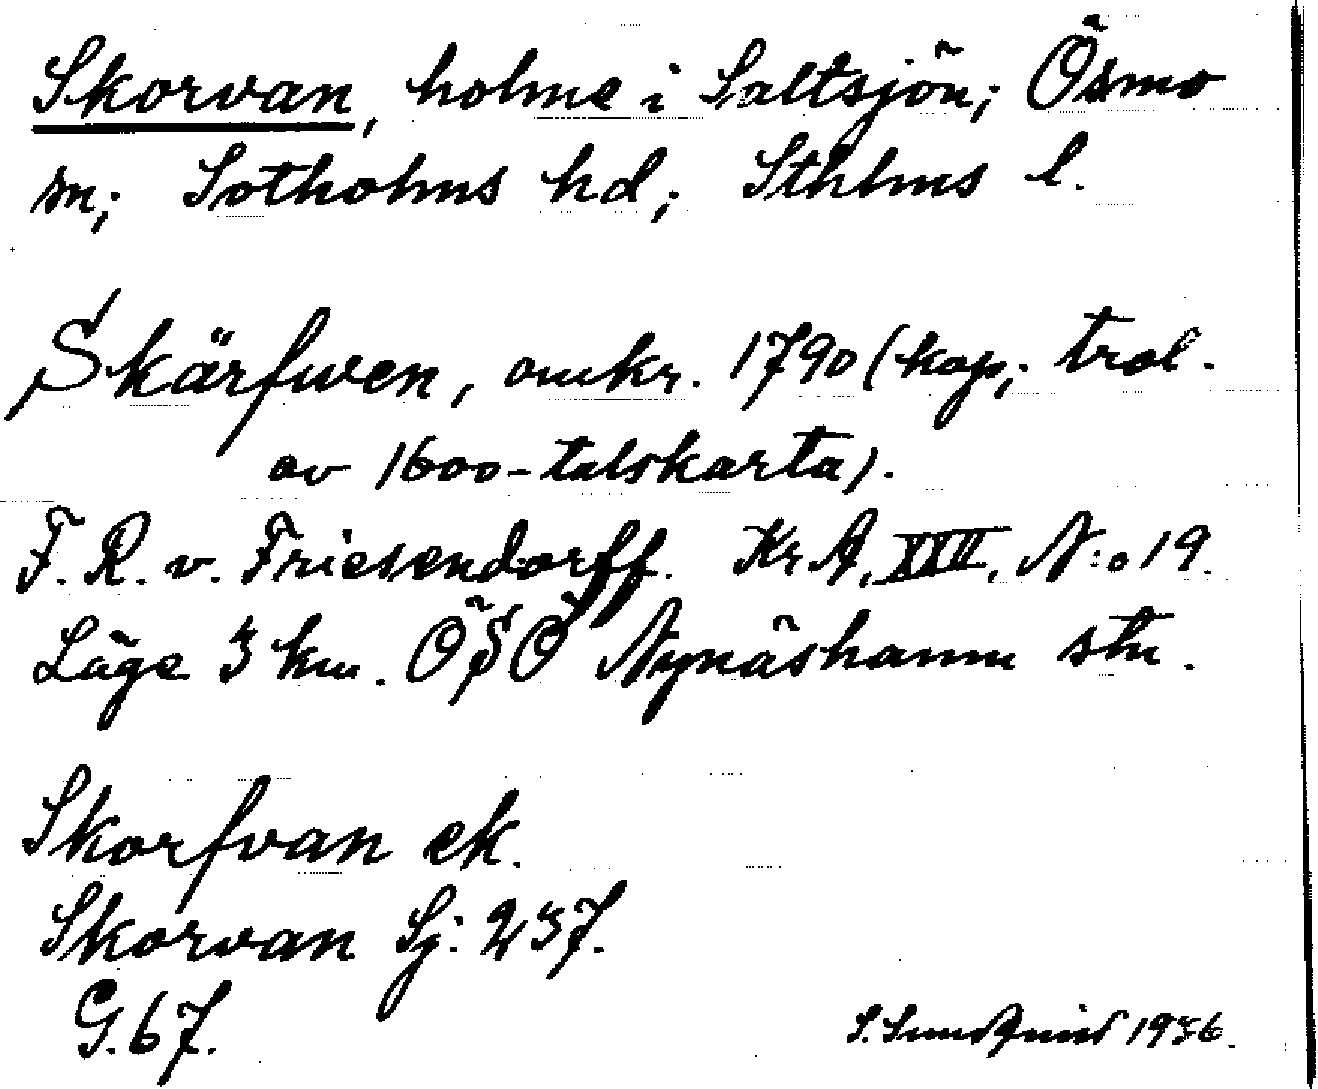 Skorvan, holme i Saltsjön; Ösmo
sn; Sotholms hd; Sthlms l.
Skärfwen, omkr. 1790 (kop; trol.
av 1600-talskarta).
F. R. v. Friesendorff. Kr. A, XIII, N:o 19.
Läge 3 km. ÖSÖ Nynäshamn stn.
Skorfvan ek.
Skorvan Sj: 237.
G. 67.
S. Sundqvist 1936.